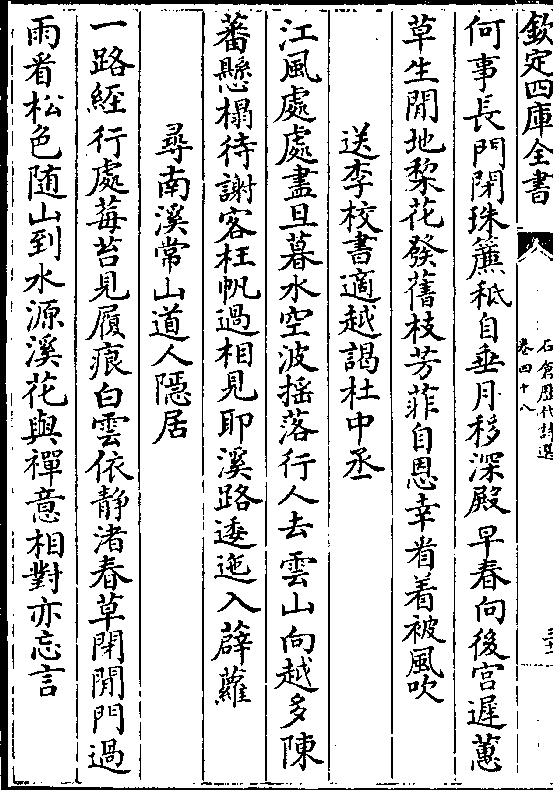 欽定四庫全書
石倉歷代詩選
卷四十八
何事長門閉珠簾秪自垂月移深殿早春向後宫遲蕙
草生閒地棃花發舊枝芳菲自恩幸㸔着被風吹
送李校書適越謁杜中丞
江風處處盡旦暮水空波摇落行人去雲山向越多陳
蕃懸榻待謝客枉帆過相見耶溪路逶迤入薜蘿
尋南溪常山道人隱居
一路經行處莓苔見屐痕白雲依静渚春草閉閒門過
雨看松色随山到水源溪花與禪意相對亦忘言